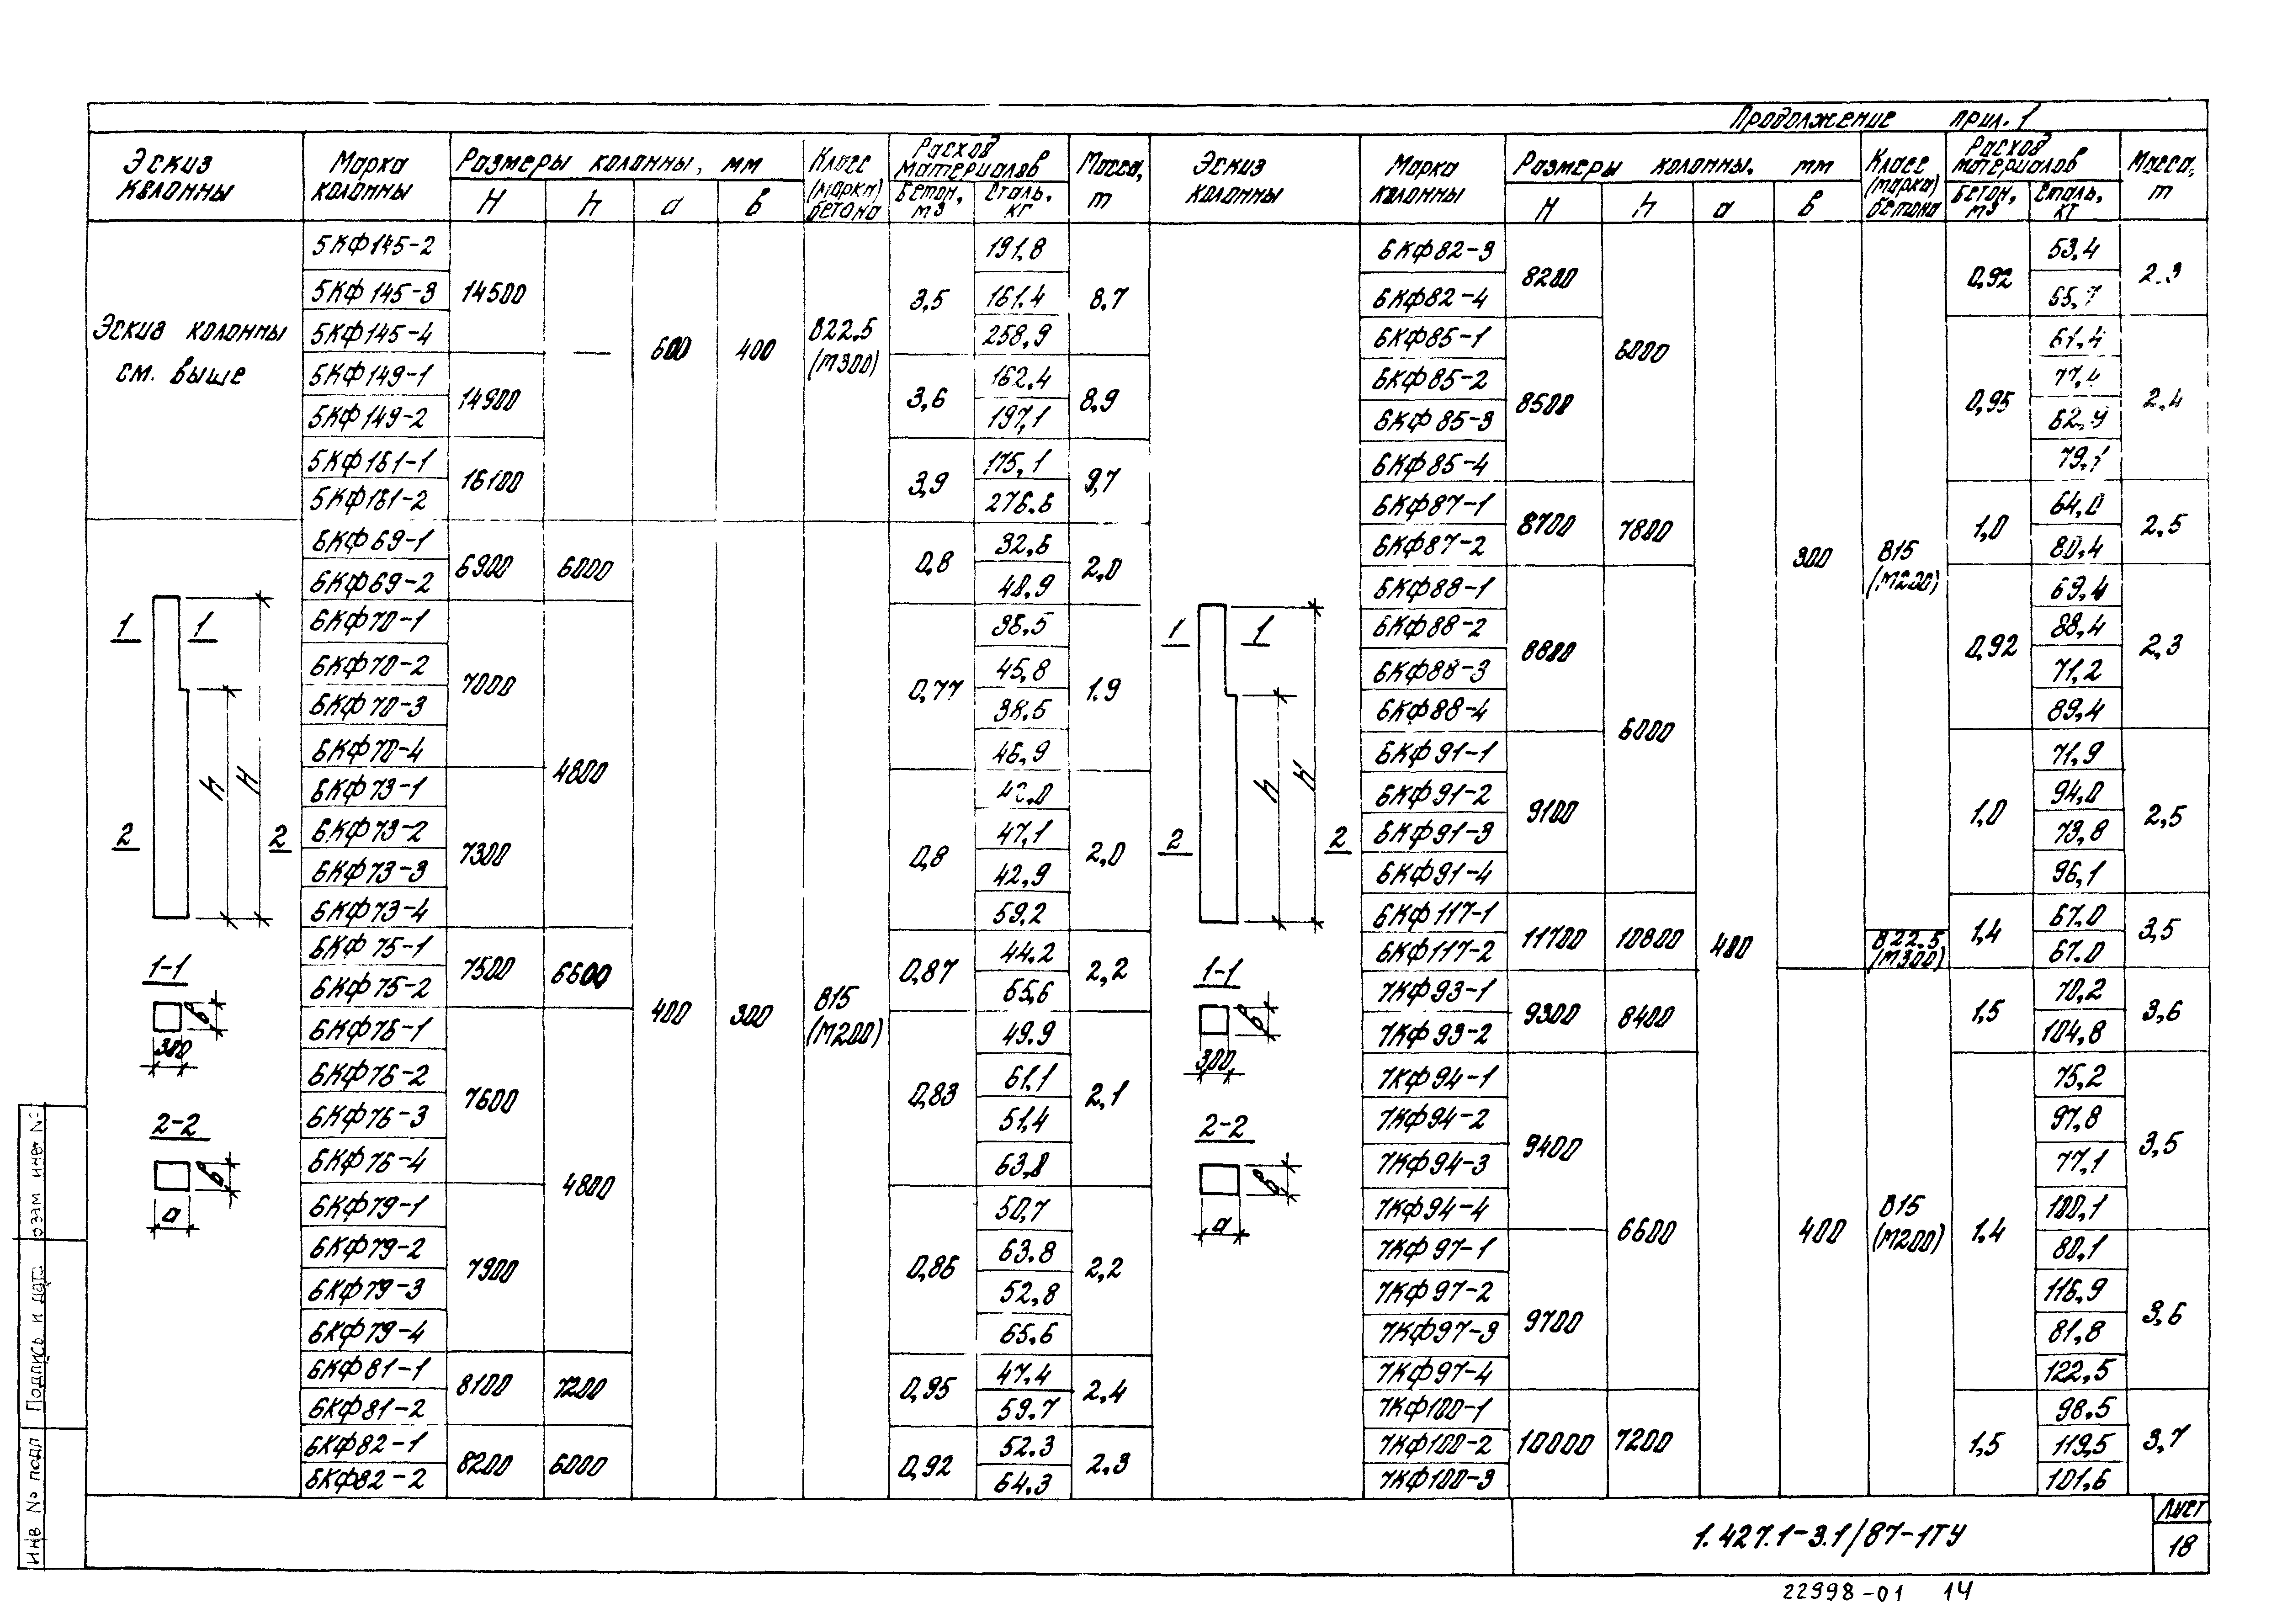 Продолжение прил. 1
Эскиз колонны
Марка колонны
Размеры колонны, мм
H h a в
Класс (марка) бетона
Расход материалов
Бетон, м3
Сталь, кг
Масса, т
Эскиз колонны
Марка колонны
Размеры колонны, мм
H h a в
Класс (марка) бетона
Расход материалов
Бетон, м3
Сталь, кг
Масса, т
Эскиз колонны
см. выше
5КФ145-2 14500 — 600 400 В22,5 (М300) 3,5 191,8 8,7
5КФ145-3 161,4
5КФ145-4 258,9
5КФ149-1 14900 3,6 162,4 8,9
5КФ149-2 197,1
5КФ161-1 16100 3,9 175,1 9,7
5КФ161-2 276,6
6КФ69-1 6900 6000 400 300 В15 (М200) 0,8 32,6 2,0
6КФ69-2 40,9
6КФ70-1 7000 4800 0,77 36,5 1,9
6КФ70-2 45,8
6КФ70-3 38,5
6КФ70-4 46,9
6КФ73-1 7300 0,8 2,0
6КФ73-2 47,1
6КФ73-3 42,9
6КФ73-4 59,2
6КФ75-1 7500 6600 0,87 44,2 2,2
6КФ75-2 65,6
6КФ76-1 7600 4800 0,83 49,9 2,1
6КФ76-2 61,1
6КФ76-3 51,4
6КФ76-4 63,8
6КФ79-1 7900 0,86 50,7 2,2
6КФ79-2 63,8
6КФ79-3 52,8
6КФ79-4 65,6
6КФ81-1 8100 7200 0,95 47,4 2,4
6КФ81-2 59,7
6КФ82-1 8200 6000 0,92 52,3 2,3
6КФ82-2 64,3
1 1
h H
2 2
1-1
в
300
2-2
в
a
6КФ82-3 8200 6000 400 300 В15 (М200) 0,92 53,4 2,3
6КФ82-4
6КФ85-1 8500 0,95 61,4 2,4
6КФ85-2 77,4
6КФ85-3 62,9
6КФ85-4 79,1
6КФ87-1 8700 7800 1,0 64,0 2,5
6КФ87-2 80,4
6КФ88-1 8800 6000 0,92 69,4 2,3
6КФ88-2 88,4
6КФ88-3 71,2
6КФ88-4 89,4
6КФ91-1 9100 1,0 71,9 2,5
6КФ91-2 94,0
6КФ91-3 73,8
6КФ91-4 96,1
6КФ117-1 11700 10800 1,4 67,0 3,5
6КФ117-2 В22,5 (М300) 67,0
7КФ93-1 9300 8400 400 В15 (М200) 1,5 70,2 3,6
7КФ93-2 104,8
7КФ94-1 9400 6600 1,4 75,2 3,5
7КФ94-2 97,8
7КФ94-3 77,1
7КФ94-4 100,1
7КФ97-1 9700 80,1 3,6
7КФ97-2 116,9
7КФ97-3 81,8
7КФ97-4 122,5
7КФ100-1 10000 7200 1,5 98,5 3,7
7КФ100-2 119,5
7КФ100-3 101,6
1 1
h H
2 2
1-1
в
300
2-2
в
a
Инв № подл Подпись и дата взам инв №
1.427.1-3.1/87-1ТУ
Лист
18
22998-01 14